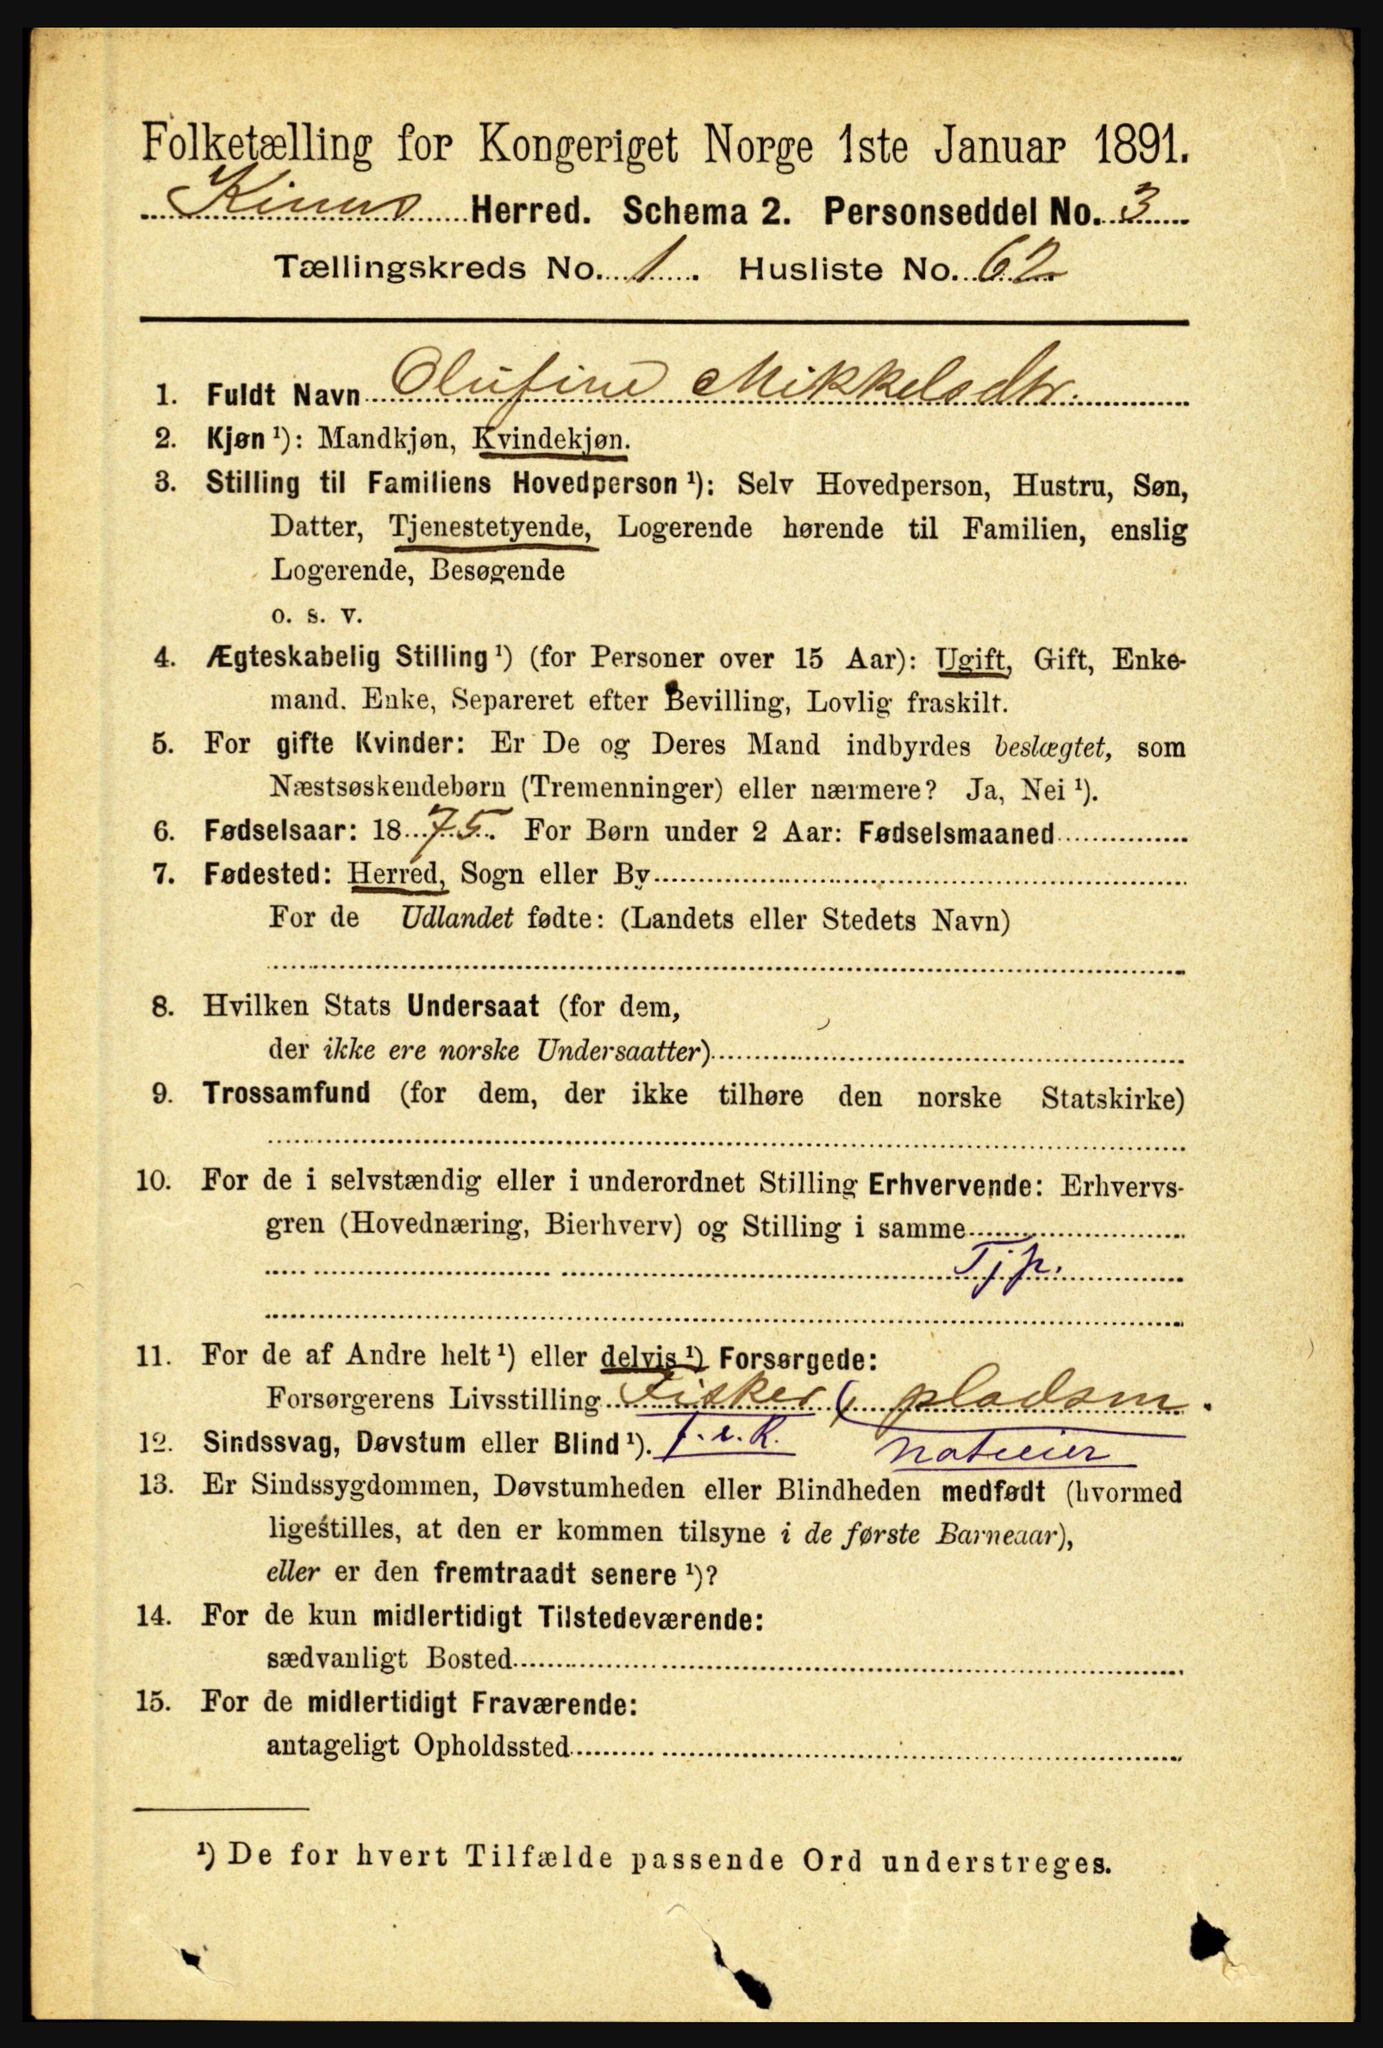 Folketælling for Kongeriget Norge 1ste Januar 1891.
Kinns Herred. Schema 2. Personseddel No. 3
Tællingskreds No. 1. Husliste No. 62
1. Fuldt Navn Olufine Mikkelsdtr.
2. Kjøn ¹): Mandkjøn, Kvindekjøn.
3. Stilling til Familiens Hovedperson ¹): Selv Hovedperson, Hustru, Søn,
Datter, Tjenestetyende, Logerende hørende til Familien, enslig
Logerende, Besøgende
o. s. v.
4. Ægteskabelig Stilling ¹) (for Personer over 15 Aar): Ugift, Gift, Enke-
mand, Enke, Separeret efter Bevilling, Lovlig fraskilt.
5. For gifte Kvinder: Er De og Deres Mand indbyrdes beslægtet, som
Næstsøskendebørn (Tremenninger) eller nærmere? Ja, Nei ¹).
6. Fødselsaar: 1875. For Børn under 2 Aar: Fødselsmaaned
7. Fødested: Herred, Sogn eller By
For de Udlandet fødte: (Landets eller Stedets Navn)
8. Hvilken Stats Undersaat (for dem,
der ikke ere norske Undersaatter)
9. Trossamfund (for dem, der ikke tilhøre den norske Statskirke)
10. For de i selvstændig eller i underordnet Stilling Erhvervende: Erhvervs-
gren (Hovednæring, Bierhverv) og Stilling i samme
Tjp.
11. For de af Andre helt ¹) eller delvis ¹) Forsørgede:
Forsørgerens Livsstilling Fisker, pladsm.
12. Sindssvag, Døvstum eller Blind ¹). f. e. R. noteier
13. Er Sindssygdommen, Døvstumheden eller Blindheden medfødt (hvormed
ligestilles, at den er kommen tilsyne i de første Barneaar),
eller er den fremtraadt senere ¹)?
14. For de kun midlertidigt Tilstedeværende:
sædvanligt Bosted
15. For de midlertidigt Fraværende:
antageligt Opholdssted
¹) De for hvert Tilfælde passende Ord understreges.